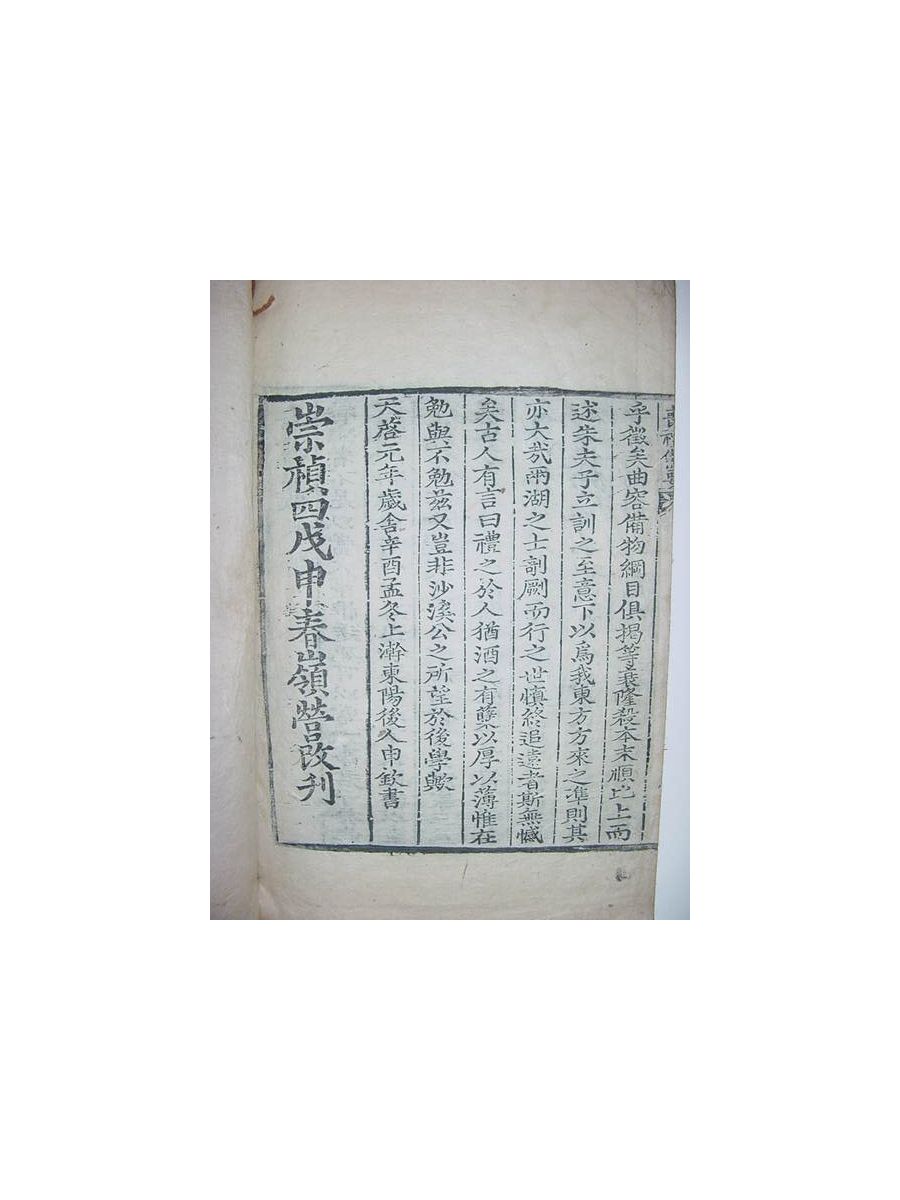 喪禮備要
乎徵矣曲容備物綱目俱揭等衰隆殺本末順比上而
述朱夫子立訓之至意下以爲我東方方來之準則其
亦大哉兩湖之士剞劂而行之世慎終追遠者斯無憾
矣古人有言曰禮之於人猶酒之有糵以厚以薄惟在
勉與不勉茲又豈非沙溪公之所望於後學歟
天啓元年歲舍辛酉孟冬上澣東陽後人申欽書
崇禎四戊申春嶺營改刊